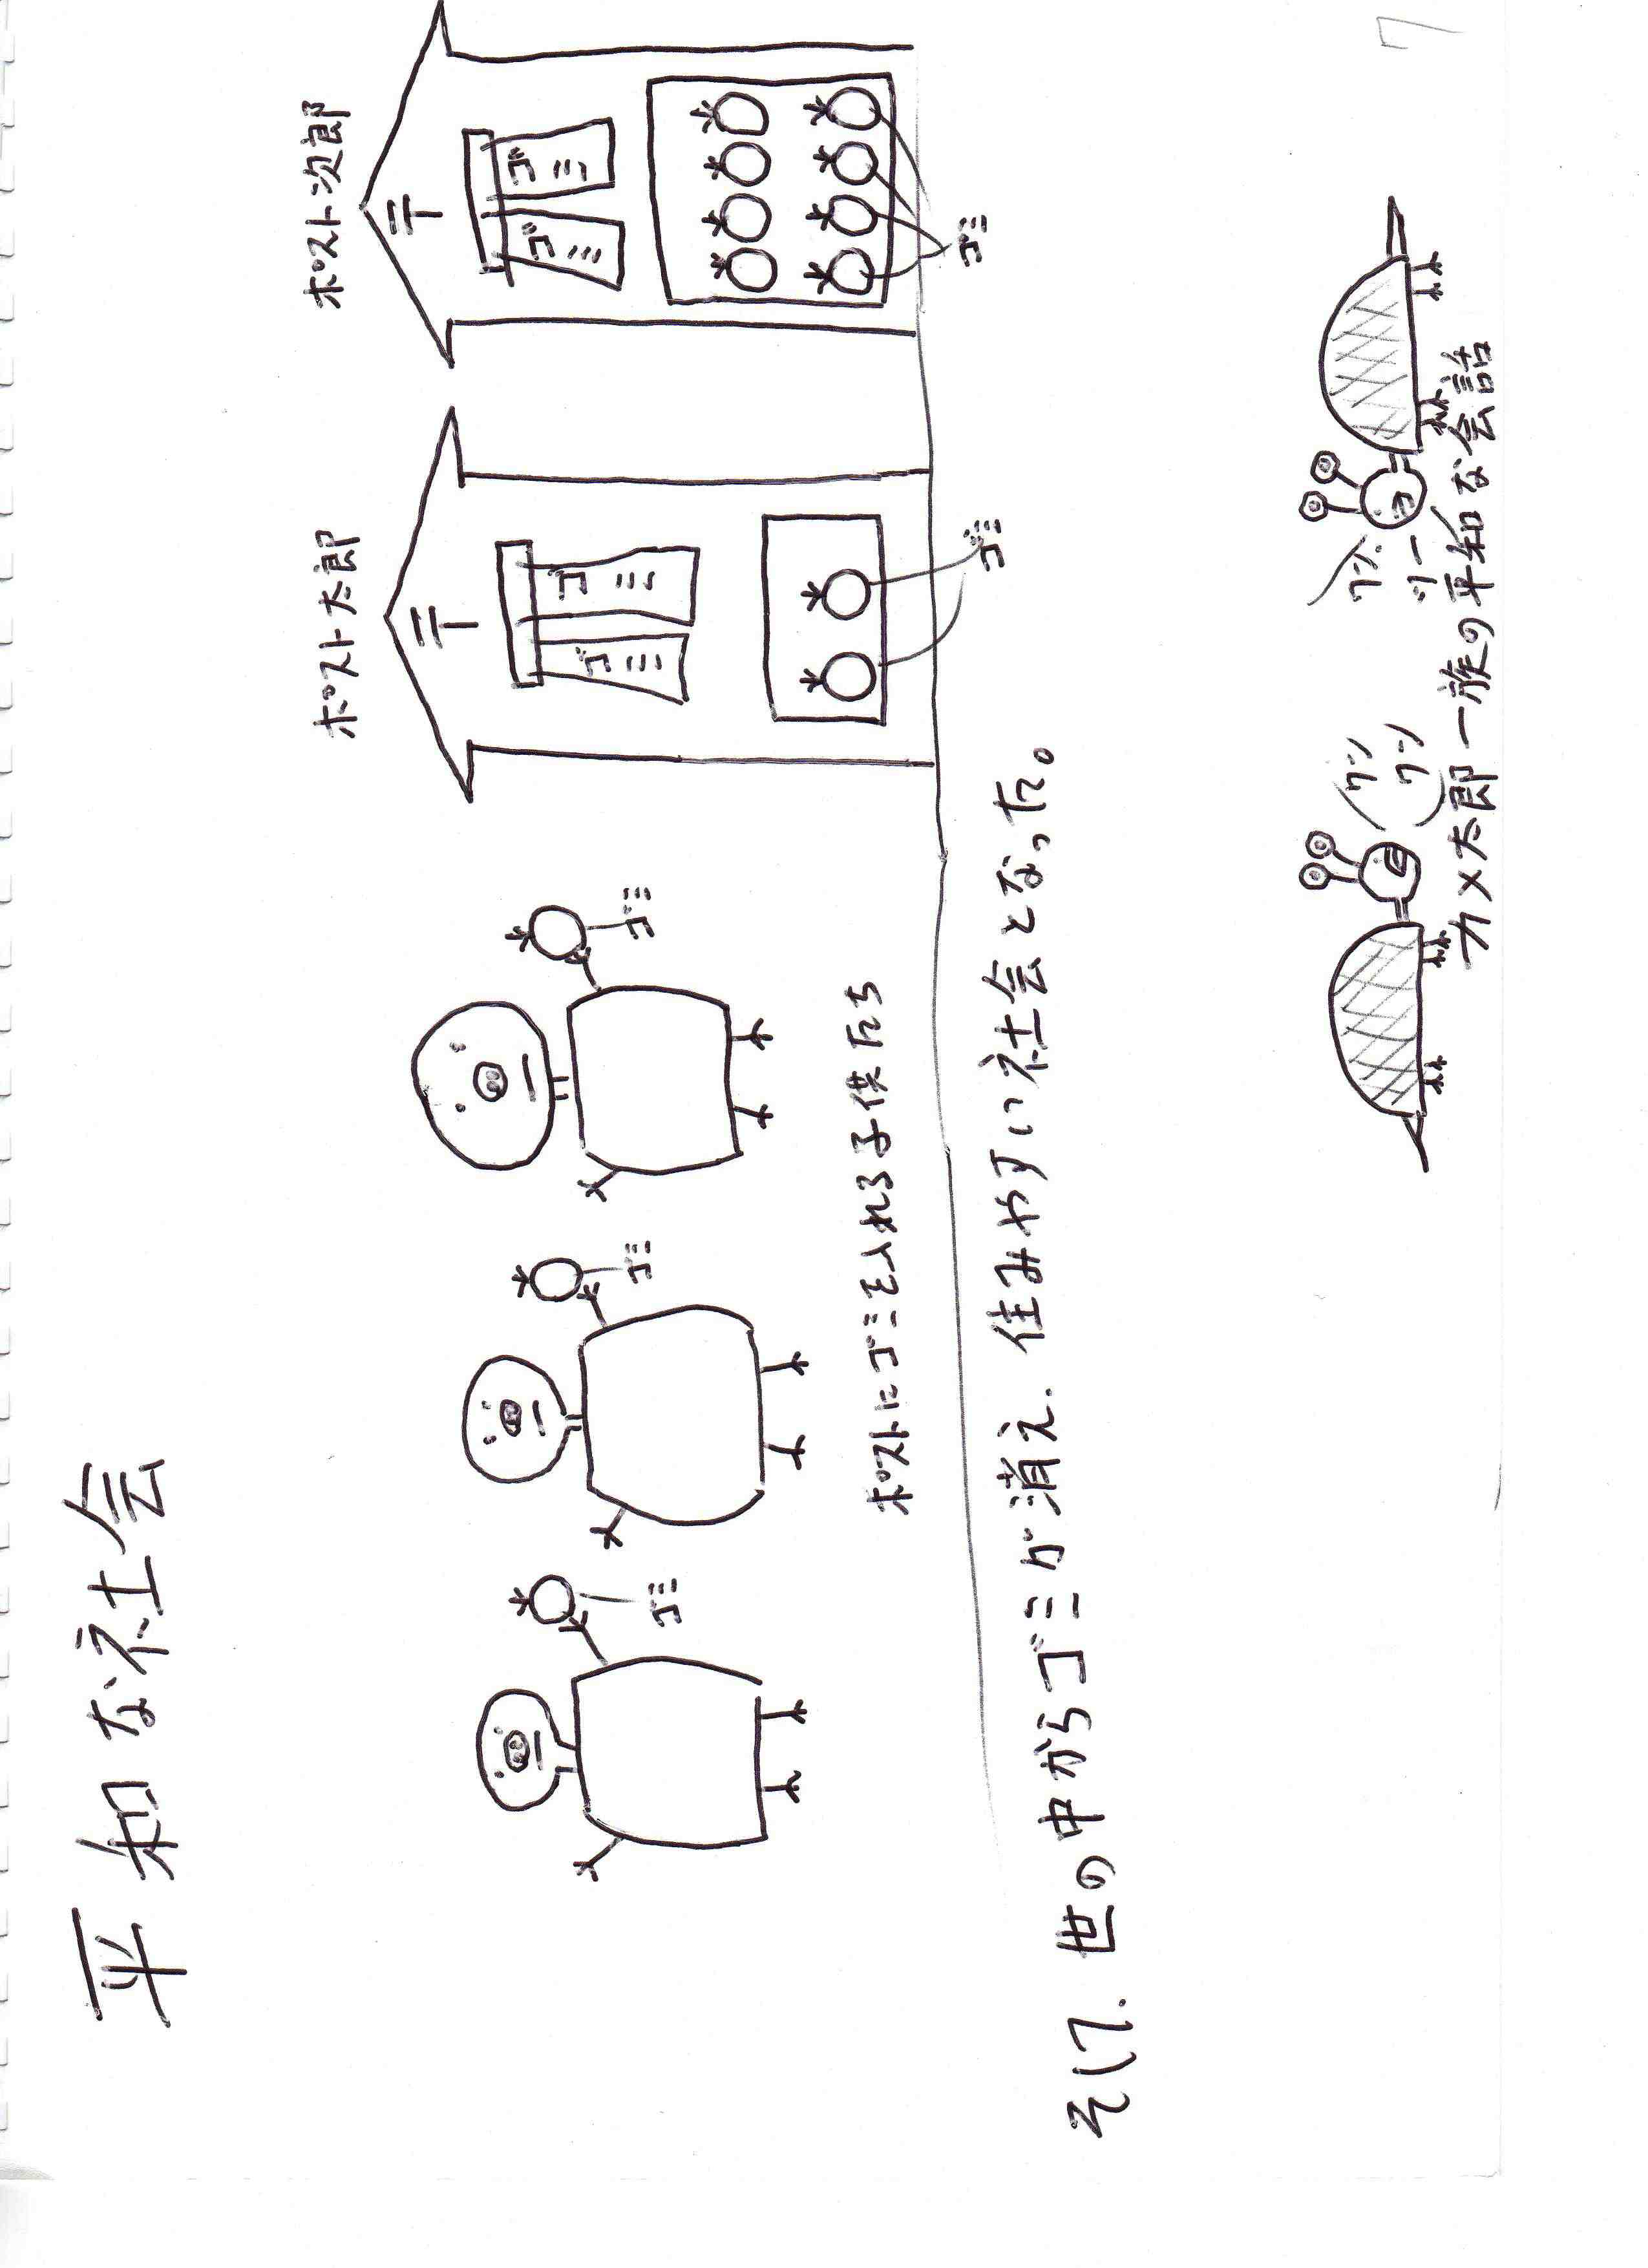 平和な社会
ポスト太郎
ポスト次郎
〒
〒
ゴミ
ゴミ
ゴミ
ゴミ
ゴミ
ゴミ
ゴミ
ゴミ
ゴミ
ポストにゴミを入れる子供たち
そして、世の中からゴミが消え、住みやすい社会となった。
ワン
ワン
ワン
ツー
カメ太郎一族の平和な会話